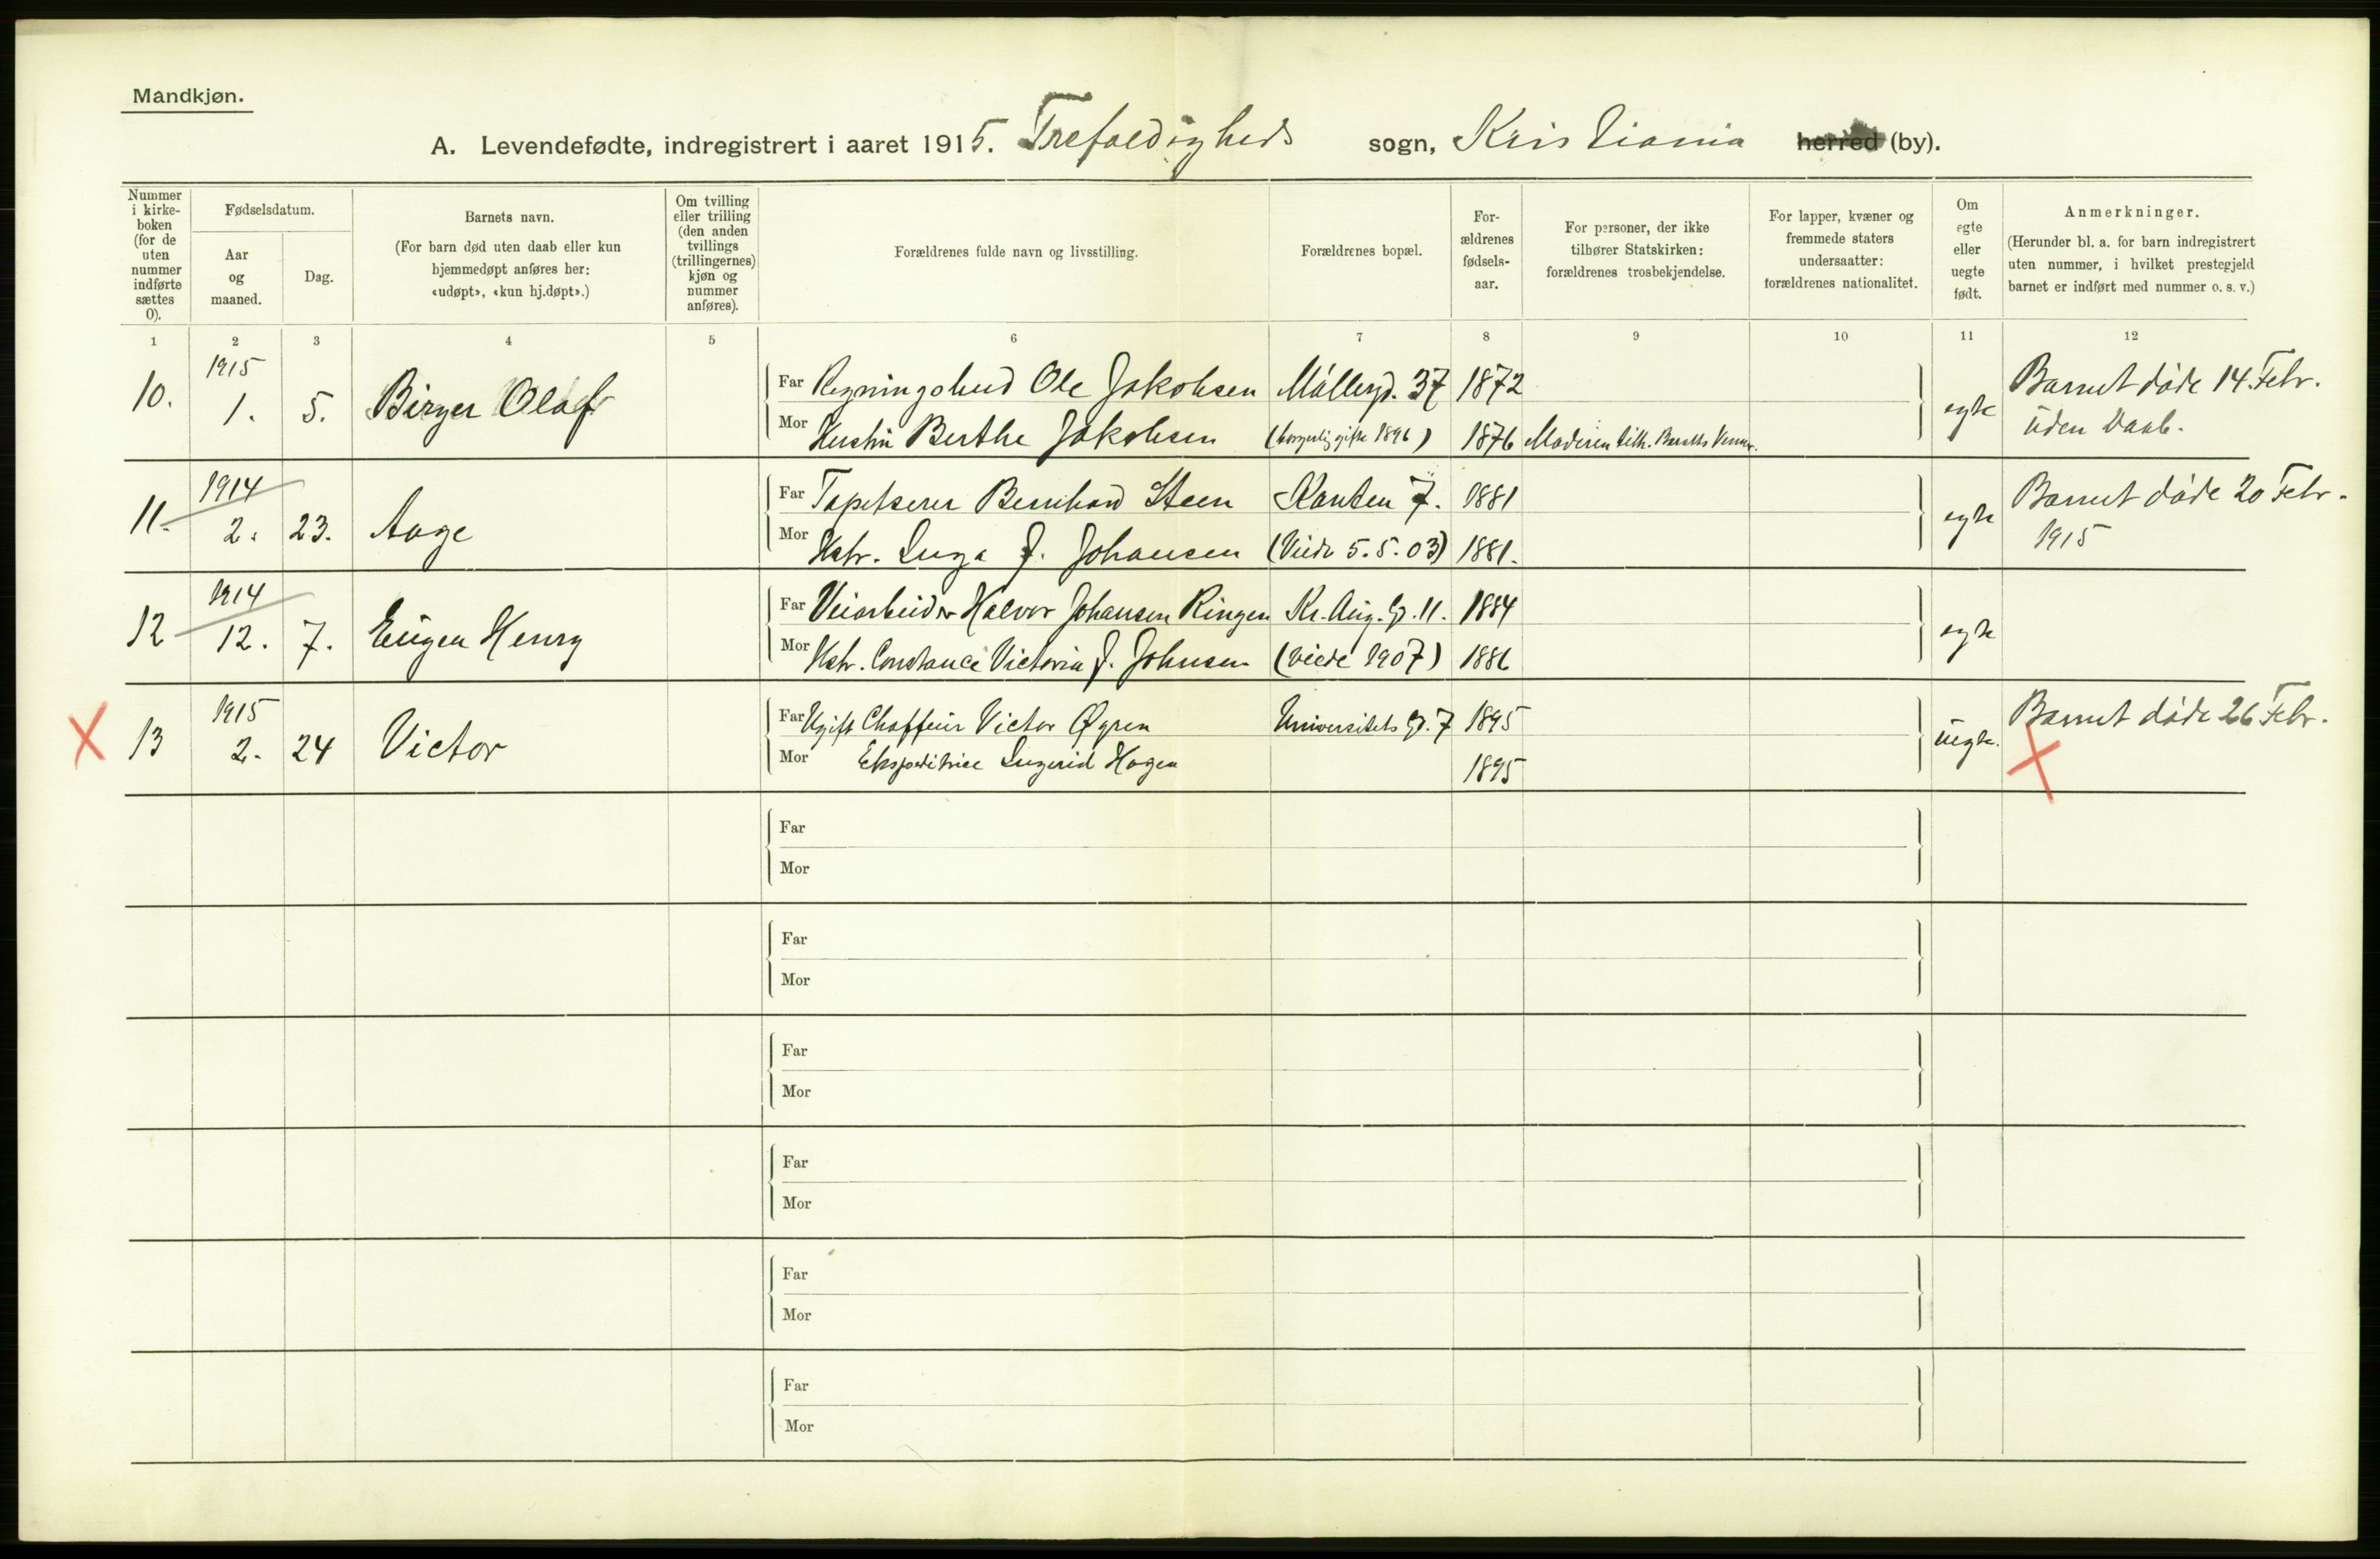 Mandkjøn.
A. Levendefødte, indregistrert i aaret 1915. Trefoldigheds sogn, Kristiania herred (by).
Nummer
i kirke-
boken
(for de
uten
nummer
indførte
sættes
0).
Fødselsdatum.
Aar
og
maaned.
Dag.
Barnets navn.
(For barn død uten daab eller kun
hjemmedøpt anføres her:
«udøpt», «kun hj.døpt».)
Om tvilling
eller trilling
(den anden
tvillings
(trillingernes)
kjøn og
nummer
anføres).
Forældrenes fulde navn og livsstilling.
Forældrenes bopæl.
For-
ældrenes
fødsels-
aar.
For personer, der ikke
tilhører Statskirken:
forældrenes trosbekjendelse.
For lapper, kvæner og
fremmede staters
undersaatter:
forældrenes nationalitet.
Om
egte
eller
uegte
født.
Anmerkninger.
(Herunder bl. a. for barn indregistrert
uten nummer, i hvilket prestegjeld
barnet er indført med nummer o. s. v.)
1 2 3 4 5 6 7 8 9 10 11 12
10. 1915 1. 5. Birger Olaf
Far Regningsbud Ole Jakobsen Møllergd. 37 1872
Mor Hustru Berthe Jakobsen (borgerlig gifte 1896) 1876 Moderen tilh.
egte Barnet døde 14. Febr.
uden Daab.
11. 1914 2. 23. Aage
Far Tapetserer Bernhard Steen Kanten 7. 1881
Mor Hstr. Inga f. Johansen (Viede 5.5.03) 1881.
egte Barnet døde 20 Febr.
1915
12 1914 12. 7. Eugen Henry
Far Veiarbeider Halvor Johansen Ringen Kr. Aug. G. 11. 1884
Mor Hstr. Constance Victoria f. Johnsen (viede 1907) 1886
egte
13 1915 2. 24 Victor
Far Ugift Chaffeur Victor Øgren Universitets G. 7 1895
Mor Ekspeditrice Ingerid Hagen 1895
uegte. Barnet døde 26 Febr.
Far
Mor
Far
Mor
Far
Mor
Far
Mor
Far
Mor
Far
Mor